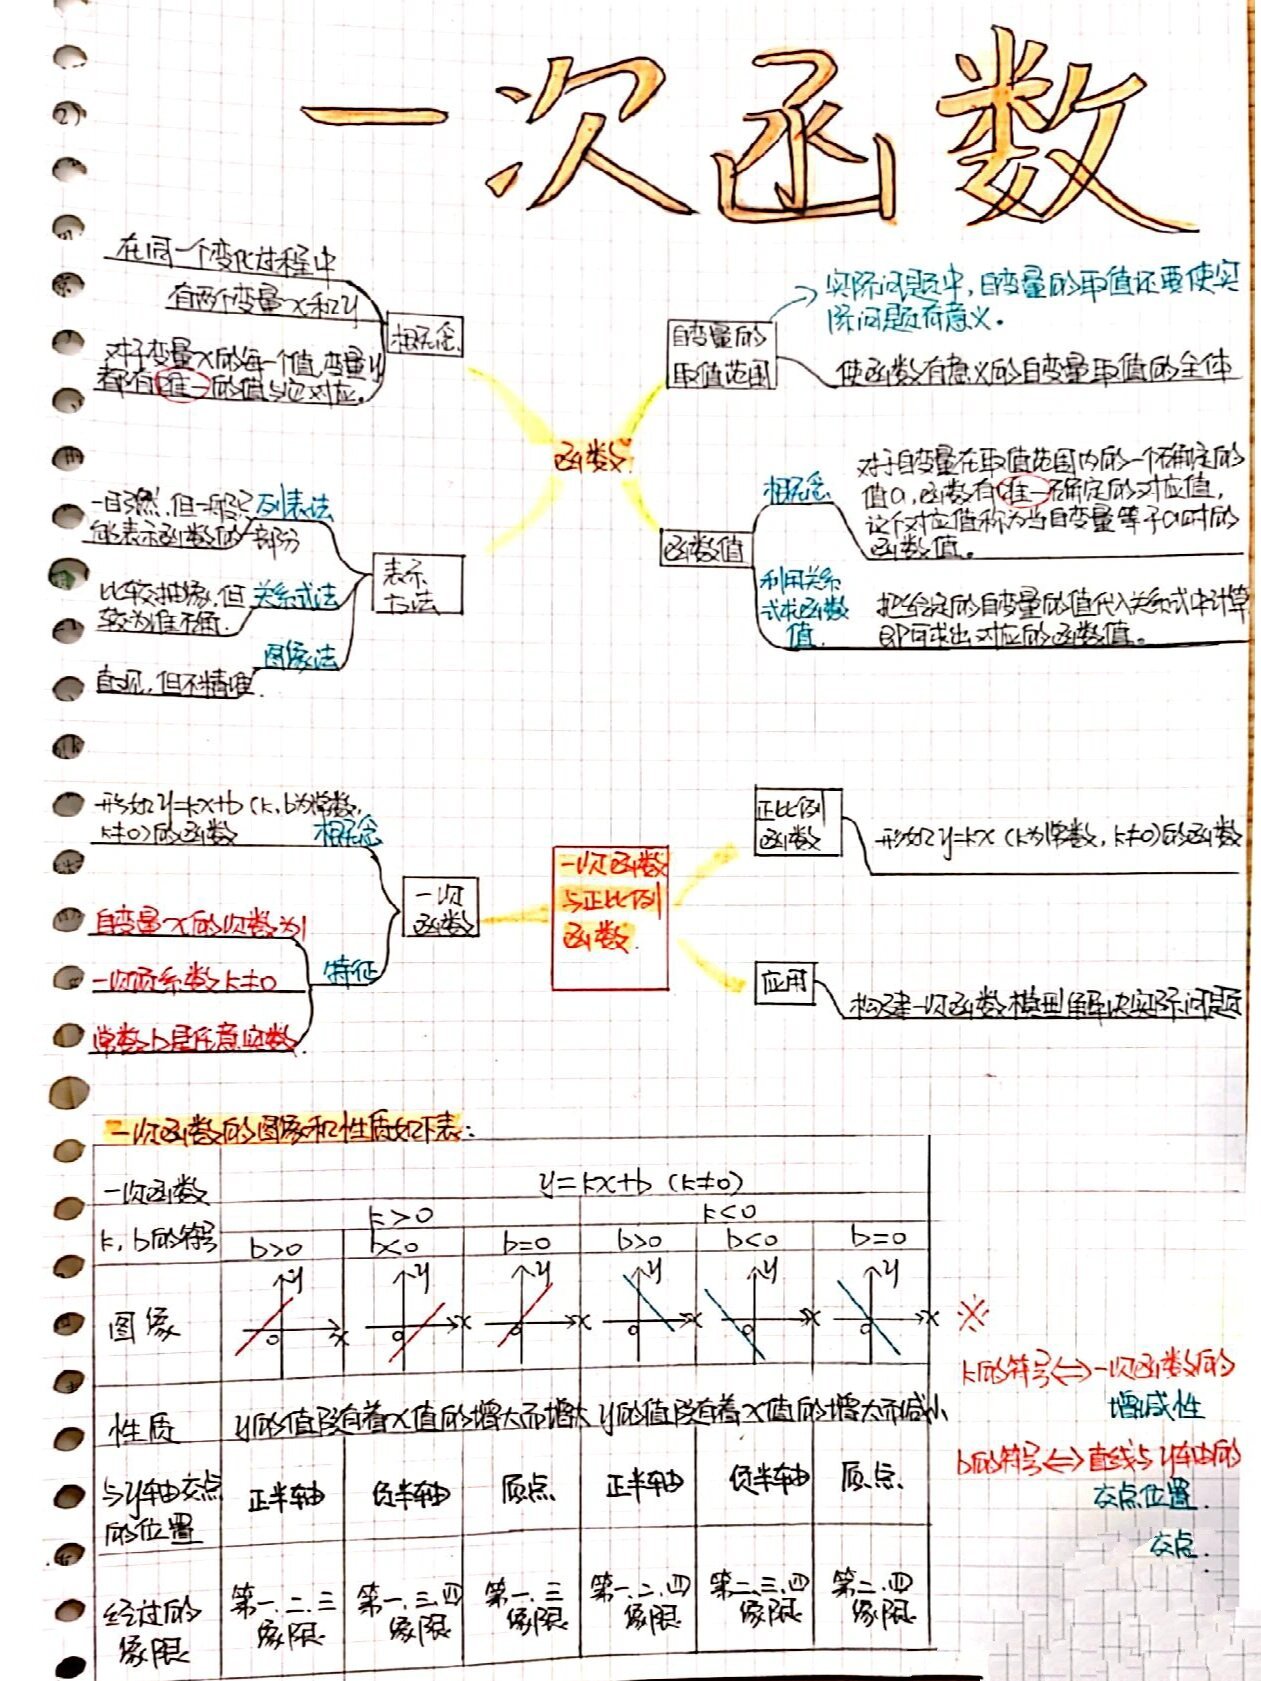 一次函数
在同一个变化过程中
有两个变量x和y
对于变量x的每一个值,变量y
都有唯一的值与它对应。
概念
实际问题中,自变量的取值还要使实
际问题有意义。
自变量的
取值范围
使函数有意义的自变量取值的全体
函数
一目了然,但一般只
能表示函数值的一部分
列表法
比较抽象,但
较为准确.
关系式法
直观,但不精准.
图像法
表示
方法
函数值
概念
对于自变量在取值范围内的一个确定的
值a,函数有唯一确定的对应值,
这个对应值称为当自变量等于a时的
函数值。
利用关系
式求函数
值
把给定的自变量的值代入关系式中计算
即可求出对应的函数值。
形如y=kx+b(k,b为常数,
k≠0)的函数
概念
自变量x的次数为1
一次项系数k≠0
常数b是任意实数
特征
一次
函数
一次函数
与正比例
函数.
正比例
函数
形如y=kx(k为常数,k≠0)的函数
应用
构建一次函数模型解决实际问题
一次函数的图像和性质如下表:
一次函数 y=kx+b (k≠0)
k,b的符号 k>0 k<0
b>0 b<0 b=0 b>0 b<0 b=0
图像
y y y y y y
0 x 0 x 0 x 0 x 0 x 0 x
性质 y的值随着x值的增大而增大 y的值随着x值的增大而减小
与y轴交点
的位置
正半轴 负半轴 原点. 正半轴 负半轴 原点.
经过的
象限
第一.二.三
象限
第一.三.四
象限
第一.三
象限
第一.二.四
象限
第二.三.四
象限
第二.四
象限
※
k的符号⇔一次函数的
增减性
b的符号⇔直线与y轴的
交点位置.
交点.